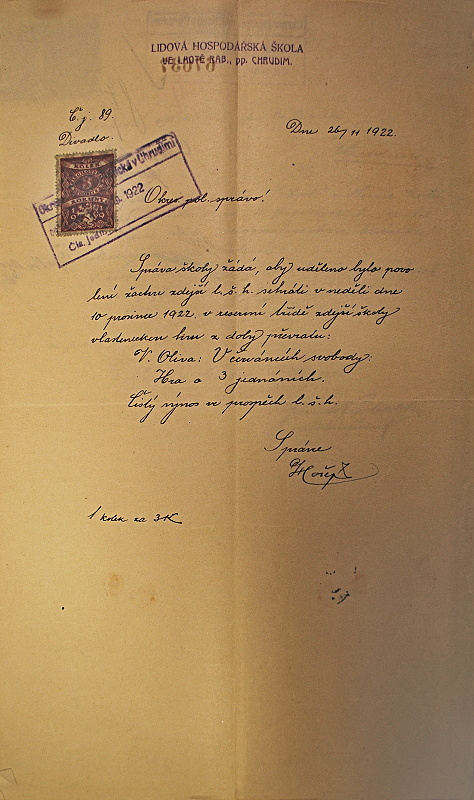 LIDOVÁ HOSPODÁŘSKÁ ŠKOLA
VE LHOTĚ RAB., pp. CHRUDIM.
Č. j. 89.
Divadlo.
Dne 26/11 1922.
v Chrudimi
1922
KOLEK
3
KORUNY
Okres. pol. správo!
Správa školy žádá, aby uděleno bylo povo
lení žactvu zdejší l. š. h. sehráti v neděli dne
10 prosince 1922, v reservní třídě zdejší školy
vlasteneckou hru z doby převratu:
V. Oliva: V červáncích svobody.
Hra o 3 jednáních.
Čistý výnos ve prospěch l. š. h.
Správce
1 kolek za 3 K